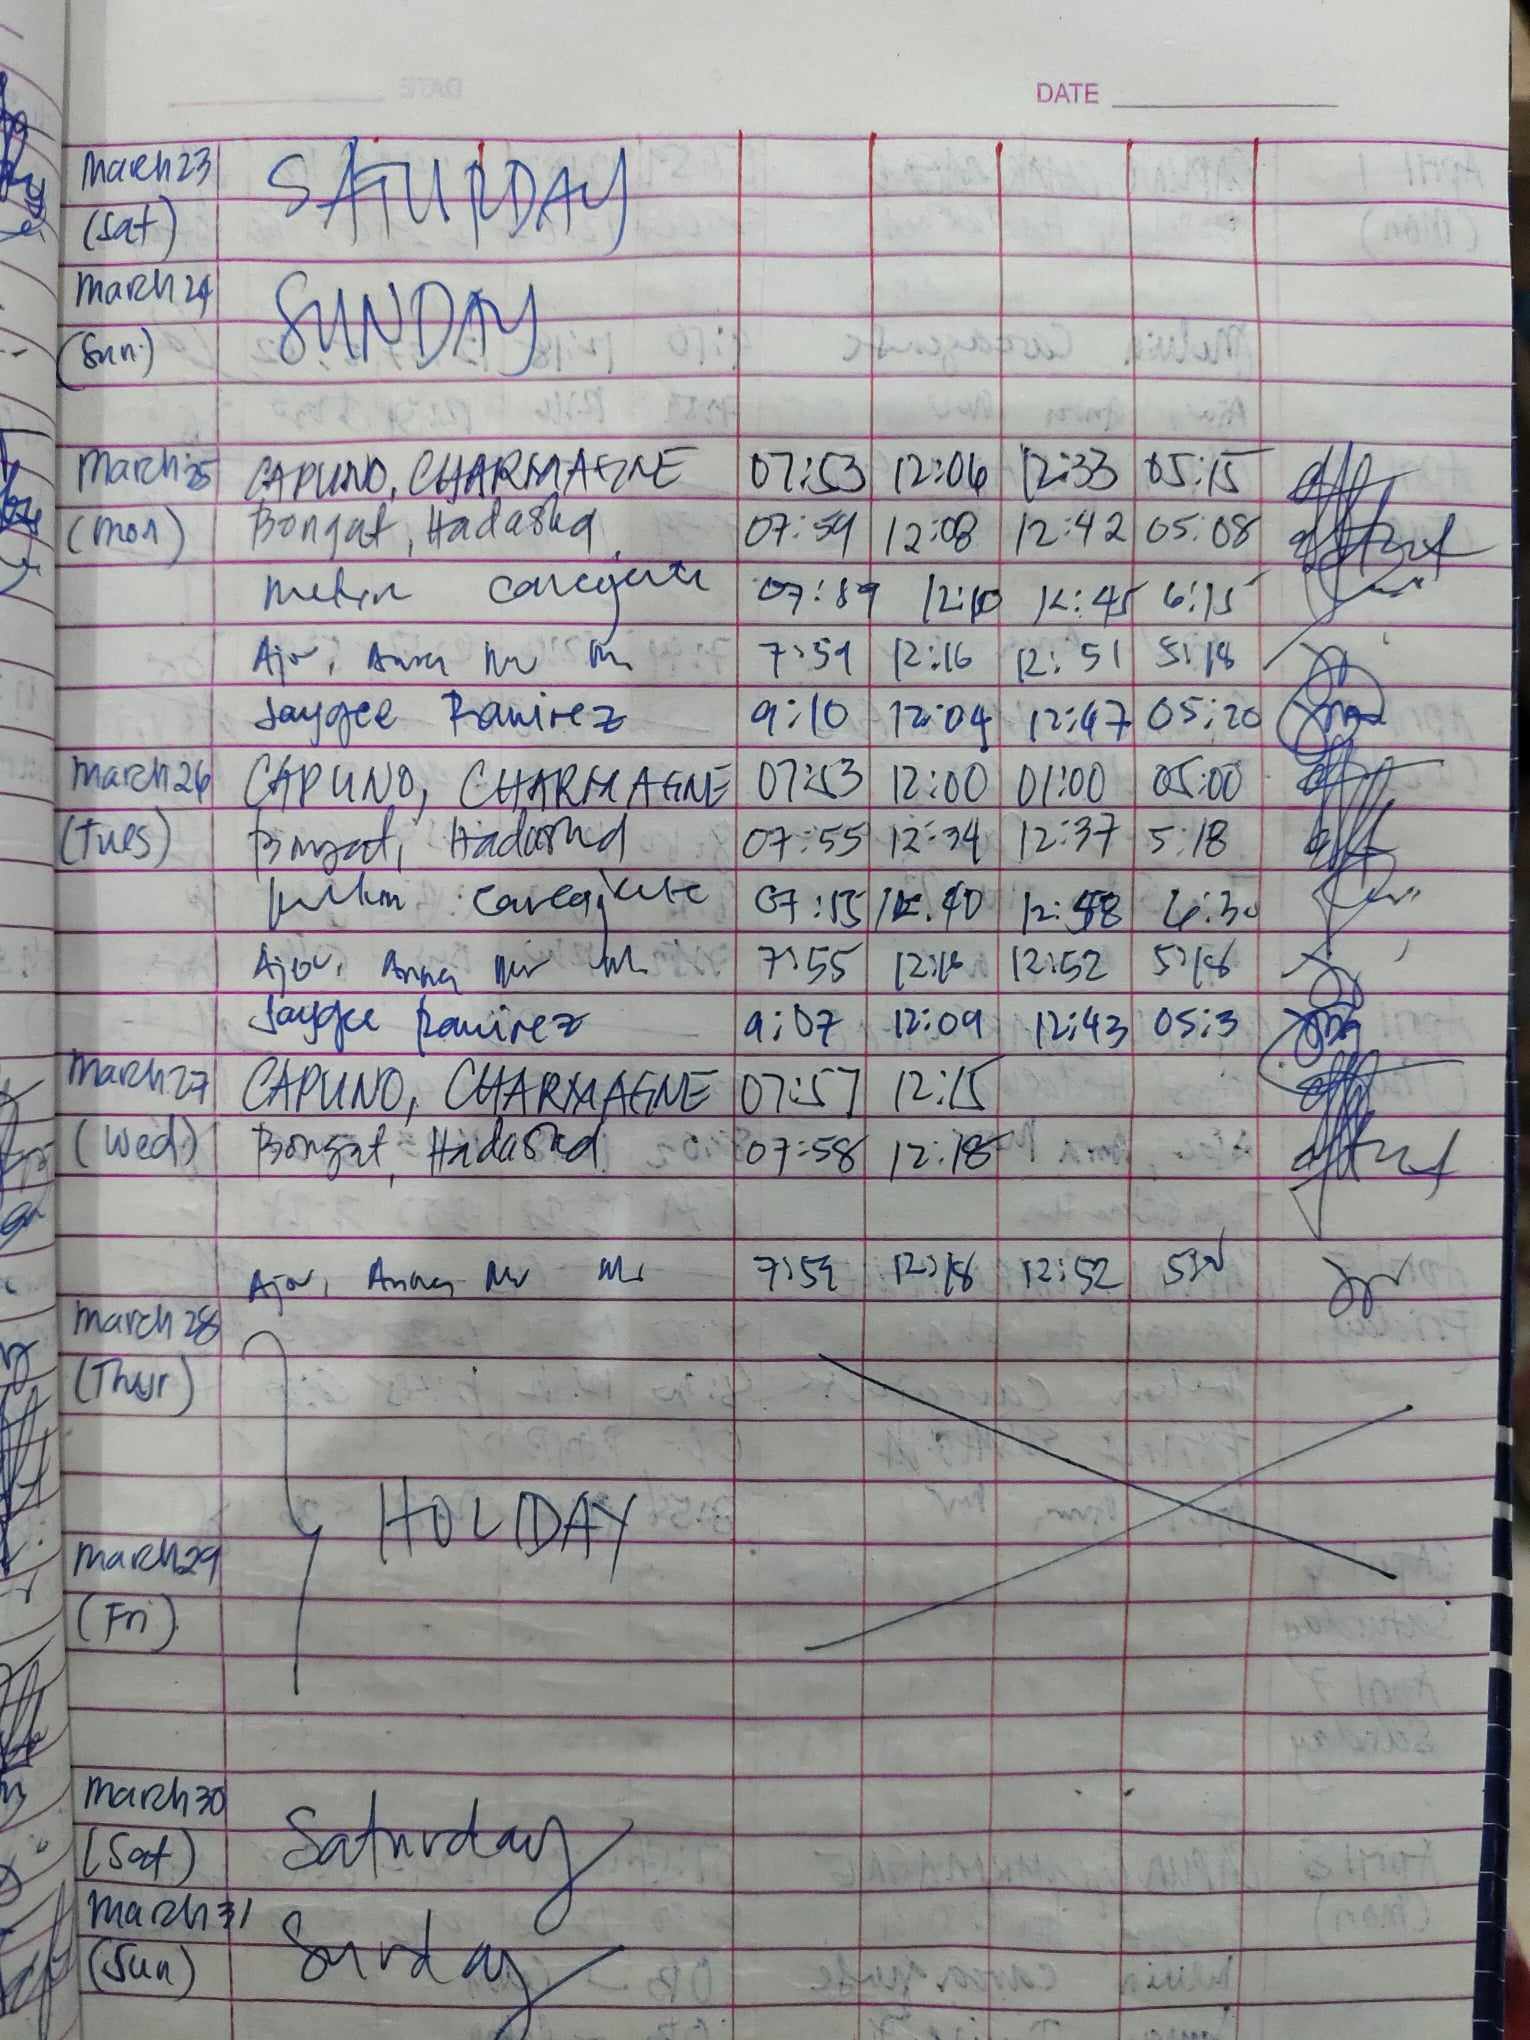 DATE
March 23 SATURDAY
(Sat)
March 24 SUNDAY
(Sun.)
March 25 CAPUNO, CHARMAGNE 07:53 12:06 12:33 05:15
(Mon) Bongat, Hadassha 07:59 12:08 12:42 05:08
12:10 12:45 6:15
Ajor, Anna 7:59 12:16 12:51 5:18
Jaygee Ramirez 9:10 12:04 12:47 05:20
March 26 CAPUNO, CHARMAGNE 07:53 12:00 01:00 05:00
(Tues) Bongat, Hadassha 07:55 12:34 12:37 5:18
12:40 12:58 6:30
Ajor, Anna 7:55 12:16 12:52 5:18
Jaygee Ramirez 9:07 12:09 12:43 05:3
March 27 CAPUNO, CHARMAGNE 07:57 12:15
(Wed) Bongat, Hadassha 07:58 12:18
Ajor, Anna 7:59 12:18 12:52
March 28
(Thur)
HOLIDAY
March 29
(Fri)
March 30
(Sat) Saturday
March 31
(Sun) Sunday